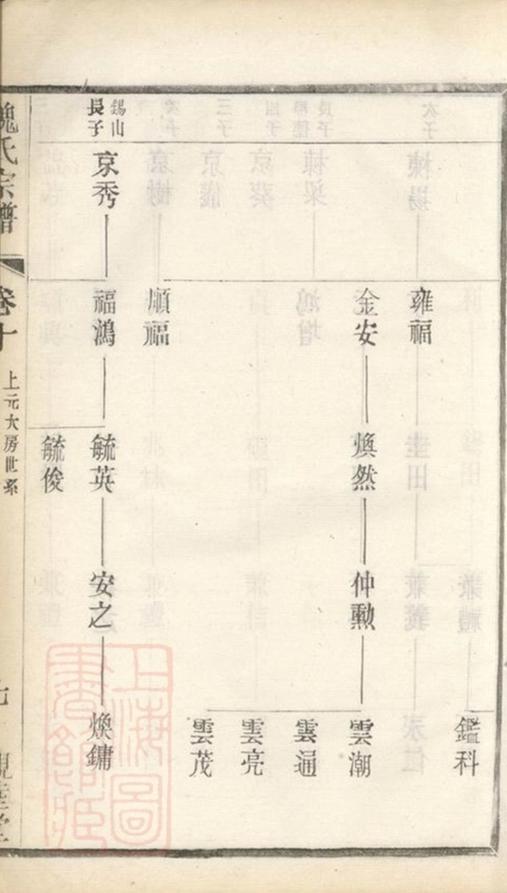 鑑科
雍福
金安
煥然
仲勲
雲潮
雲通
雲亮
雲茂
順福
錫山
長子
京秀
福鴻
毓英
安之
煥鏞
毓俊
魏氏宗譜
卷十
上元大房世系
上海圖書館藏